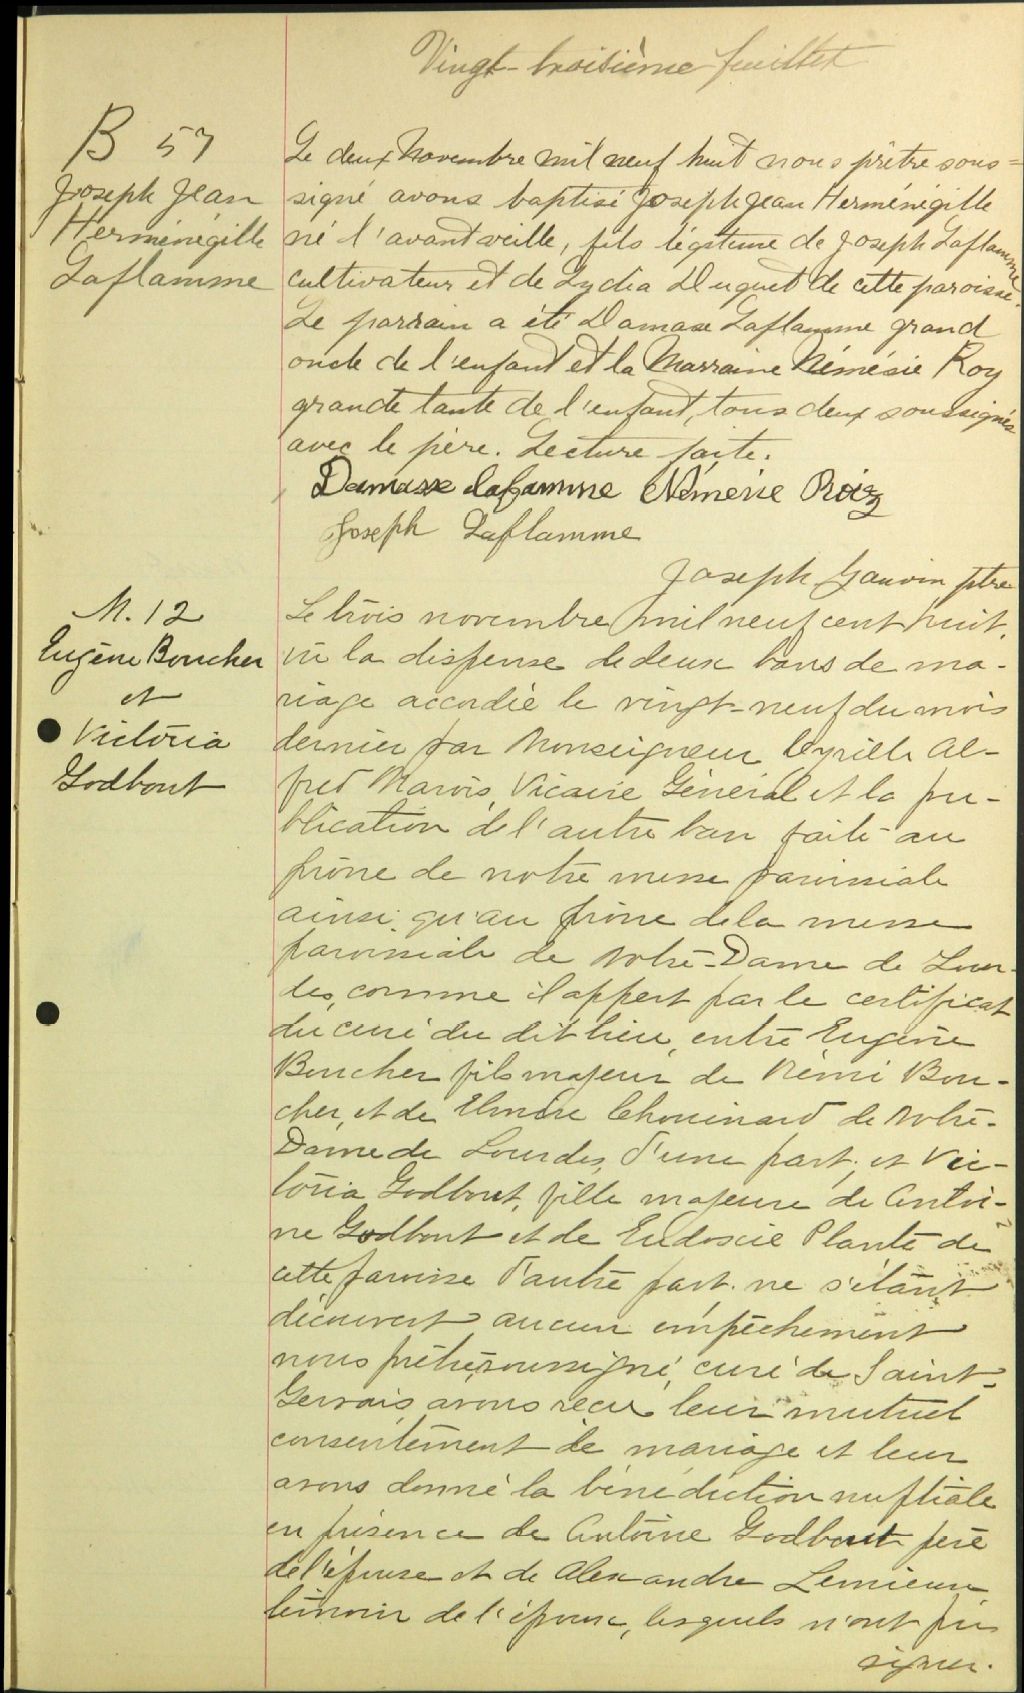 Vingt-troisième feuillet
B 57
Joseph Jean
Herménégille
Laflamme
Le deux Novembre mil neuf huit nous prêtre sous=
signé avons baptisé Joseph Jean Herménégille
né l'avant veille, fils légitime de Joseph Laflamme
cultivateur et de Lydia Duquet de cette paroisse.
Le parrain a été Damase Laflamme grand
oncle de l'enfant et la Marraine Némésie Roy
grande tante de l'enfant, tous deux soussignés
avec le père. Lecture faite.
Damase Laflamme Némérie Roiz
Joseph Laflamme
Joseph Gauvin ptre
M. 12
Eugène Boucher
et
Victoria
Godbout
Le trois novembre mil neuf cent huit,
vu la dispense de deux bans de ma-
riage accordée le vingt-neuf du mois
dernier par Monseigneur Cyrille Al-
fred Marois, Vicaire Général et la pu-
blication de l'autre ban faite au
prône de notre messe paroissiale
ainsi qu'au prône de la messe
paroissiale de Notre-Dame de Lour-
des, comme il appert par le certificat
du curé du dit lieu, entre Eugène
Boucher fils majeur de Rémi Bou-
cher, et de Elmire Chouinard de Notre-
Dame de Lourdes, d'une part; et Vic-
toria Godbout, fille majeure de Antoi-
ne Godbout et de Eudoxie Plante de
cette paroisse d'autre part. ne s'étant
découvert aucun empêchement
nous prêtre soussigné, curé de Saint-
Gervais, avons reçu leur mutuel
consentement de mariage et leur
avons donné la bénédiction nuptiale
en présence de Antoine Godbout père
de l'épouse et de Alexandre Lemieux
témoin de l'époux, lesquels n'ont pu
signer.